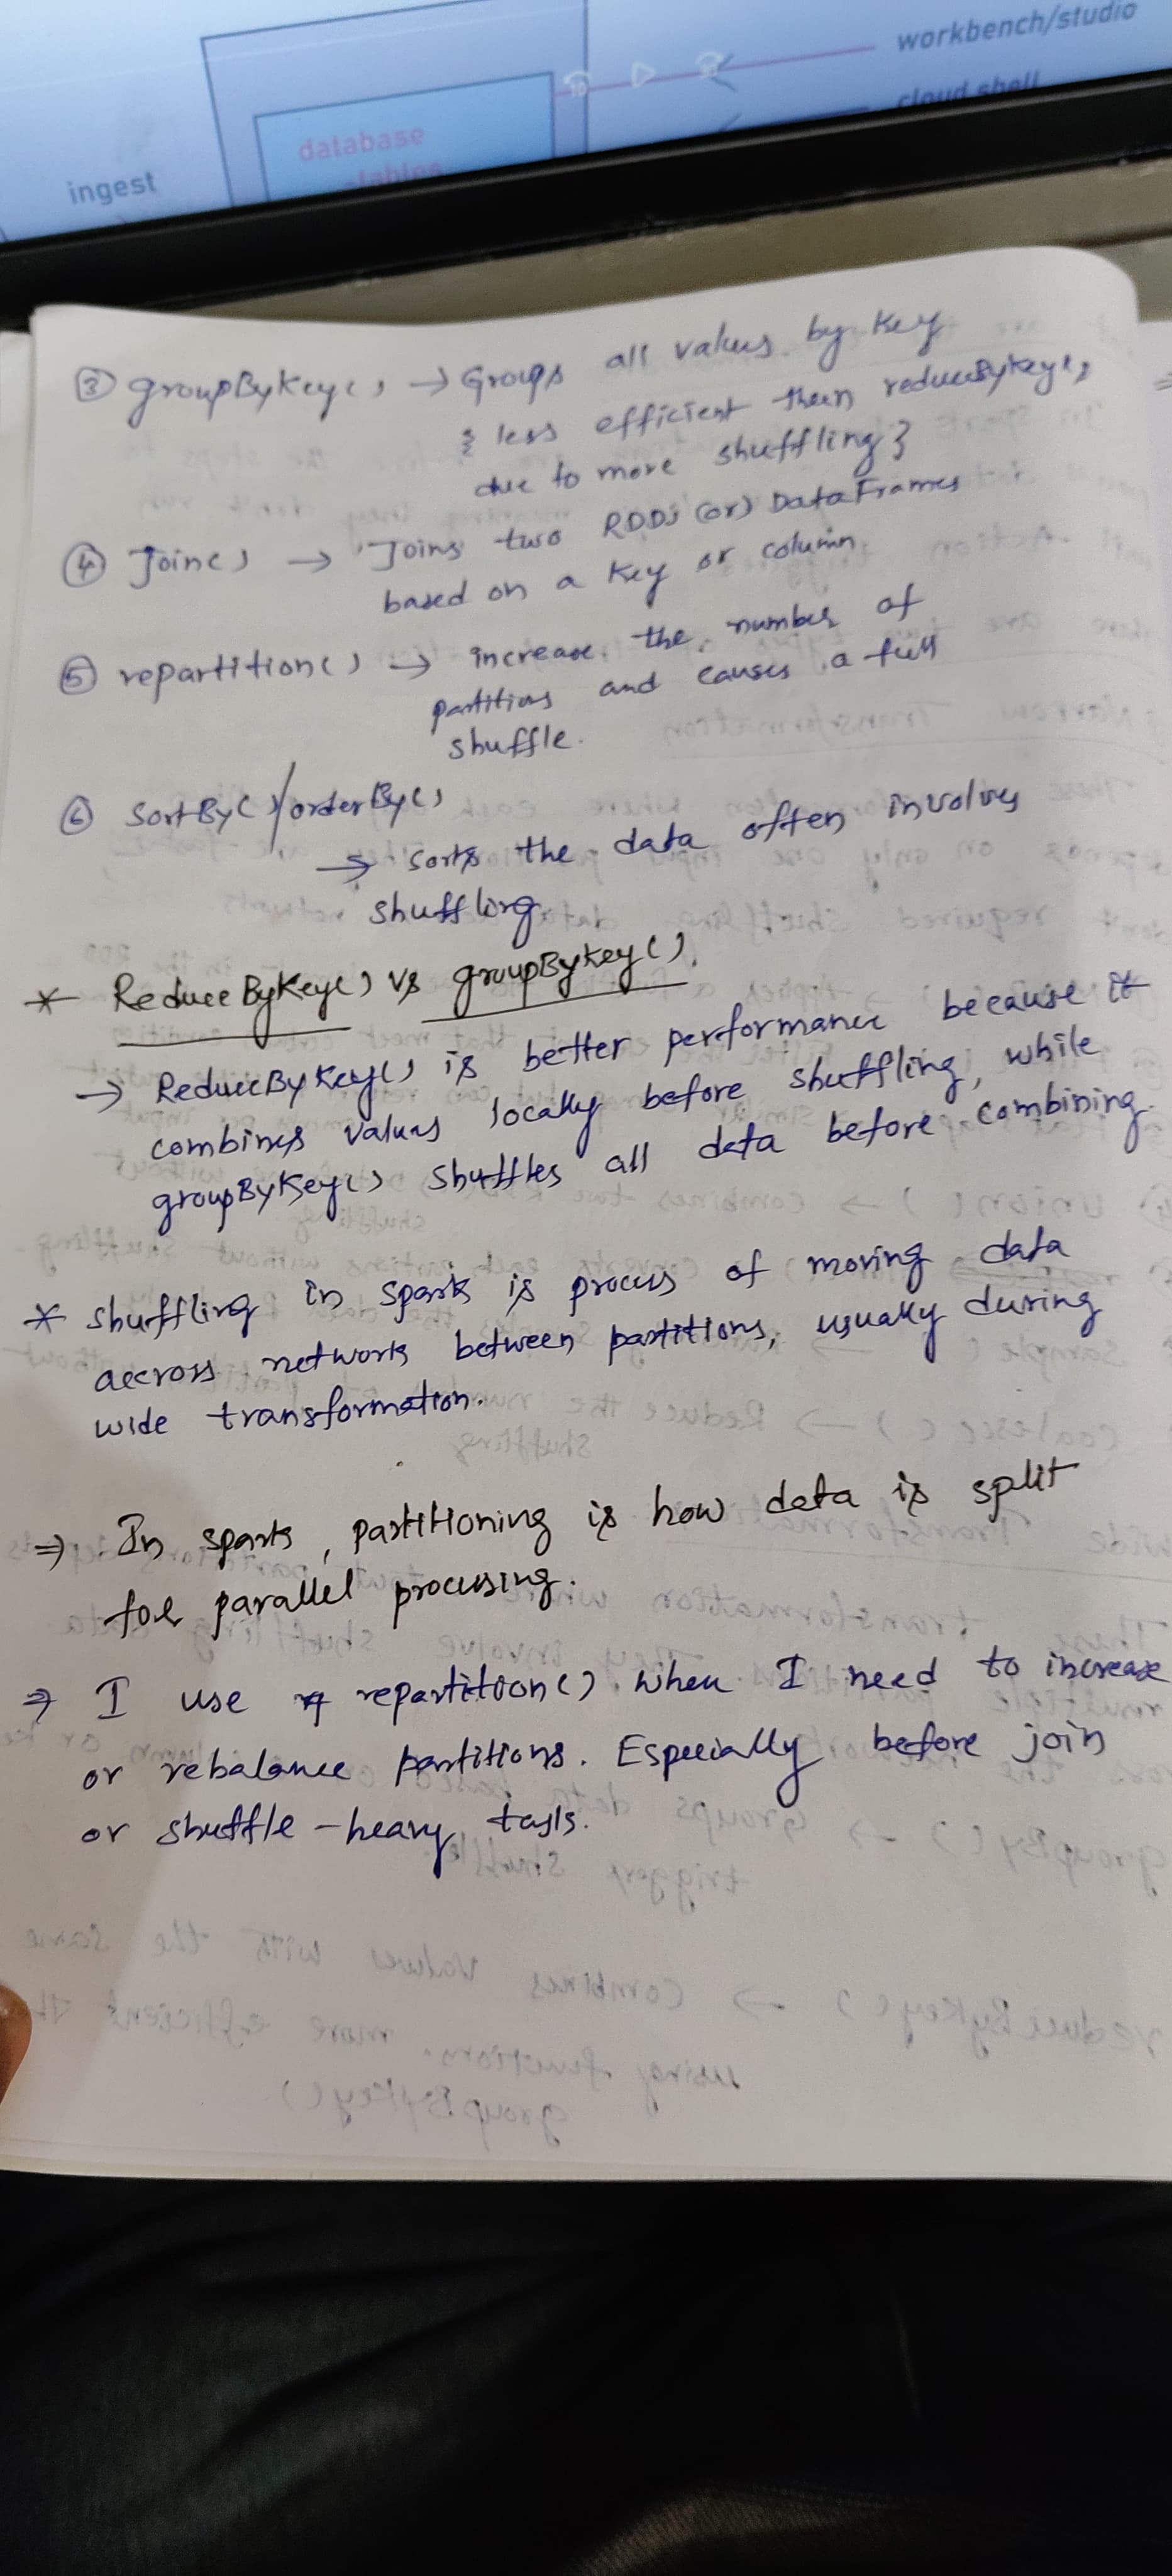 workbench/studio
cloud shell
database
tables
ingest
③ groupByKey() → Groups all values by key
{ less efficient than reduceByKey()
due to more shuffling }
④ Join() → Joins two RDDs (or) DataFrames
based on a key or column
⑤ repartition() → increase the number of
partitions and causes a full
shuffle.
⑥ SortBy()/orderBy()
→ sorts the data often involves
shuffling
* ReduceByKey() Vs groupByKey().
→ ReduceByKey() is better performance because it
combines values locally before shuffling, while
groupByKey() shuffles all data before combining.
* shuffling in spark is process of moving data
accross network between partitions, usually during
wide transformation.
⇒ In spark, partitioning is how data is split
for parallel processing.
⇒ I use repartition() when I need to increase
or rebalance partitions. Especially before join
or shuffle-heavy tasks.